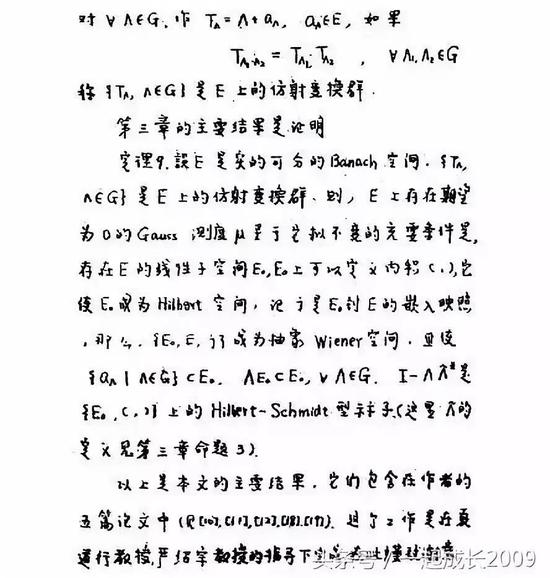 对 ∀ Λ∈G, 作 T_Λ = Λ + a_Λ, a_Λ∈E, 如果
T_{Λ₁Λ₂} = T_{Λ₁} T_{Λ₂}, ∀ Λ₁, Λ₂∈G
称 {T_Λ, Λ∈G} 是 E 上的仿射变换群.
第三章的主要结果是证明
定理9. 設 E 是实的可分的 Banach 空间. {T_Λ,
Λ∈G} 是 E 上的仿射变换群. 则, E 上存在期望
为 0 的 Gauss 测度 μ 关于它拟不变的充要条件是,
存在 E 的线性子空间 E₀, E₀ 上可以定义内积 (,), 它
使 E₀ 成为 Hilbert 空间, 记 i 是 E₀ 到 E 的嵌入映照
, 那么, {E₀, E, i} 成为抽象 Wiener 空间, 且使
{a_Λ | Λ∈G} ⊂ E₀. ΛE₀ ⊂ E₀, ∀ Λ∈G. I - Λ Λ̃* 是
{E₀, (,)} 上的 Hilbert-Schmidt 型算子 (这里 Λ̃ 的
定义见第三章命题 3).
以上是本文的主要结果, 它们包含在作者的
五篇论文中 (见[10], [11], [12], [18], [19]). 这个工作是在夏
道行教授, 严绍宗教授的指导下完成
头条号 / 一起成长2009